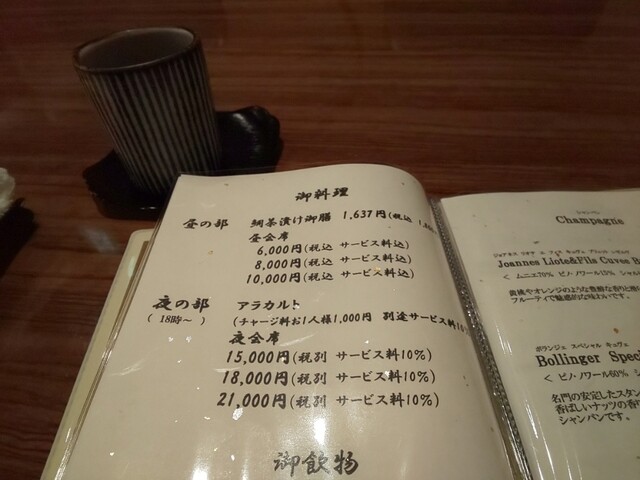 御料理
昼の部 鯛茶漬け御膳 1,637円(税込
昼会席
6,000円(税込 サービス料込)
8,000円(税込 サービス料込)
10,000円(税込 サービス料込)
夜の部 アラカルト
(18時〜) (チャージ料お1人様1,000円 別途サービス料10%
夜会席
15,000円(税別 サービス料10%)
18,000円(税別 サービス料10%)
21,000円(税別 サービス料10%)
御飲物
シャンパン
Champagne
Joannes Liote&Fils Cuvee
< ムニエ70% ピノ・ノワール15%
黄桃やオレンジのような豊醇な香りと
フルーティで魅惑的な味わいです。
ボランジェ スペシャル キュヴェ
Bollinger Spec
< ピノ・ノワール60%
名門の安定したスタン
香ばしいナッツの香
シャンパンです。